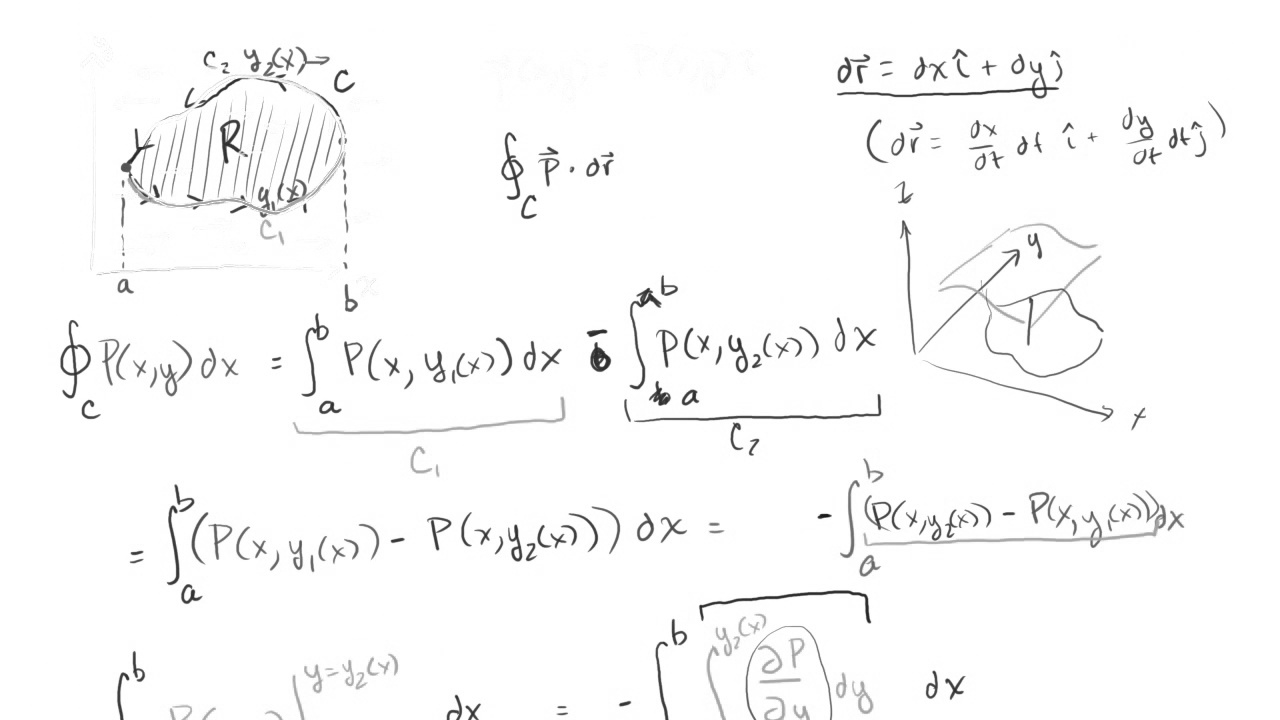 C₂ y₂(x)→ C
R
y₁(x)
C₁
a
b
x
∮_C P⃗ · dr⃗
dr⃗ = dx î + dy ĵ
(dr⃗ = dx/dt dt î + dy/dt dt ĵ)
z
y
x
∮_C P(x,y) dx = ∫_a^b P(x, y₁(x)) dx - ∫_a^b P(x, y₂(x)) dx
C₁ C₂
= ∫_a^b (P(x, y₁(x)) - P(x, y₂(x))) dx = - ∫_a^b (P(x, y₂(x)) - P(x, y₁(x))) dx
∫^b P( |^{y=y₂(x)} dx = - ∫^b ∫^{y₂(x)} ∂P/∂y dy dx